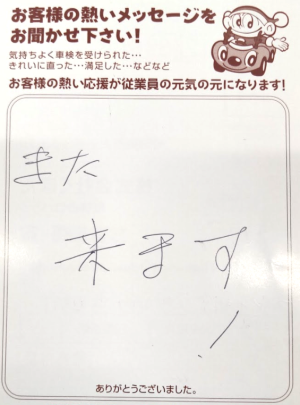 お客様の熱いメッセージを
お聞かせ下さい!
気持ちよく車検を受けられた…
きれいに直った…満足した…などなど
お客様の熱い応援が従業員の元気の元になります!
また
来ます
!
ありがとうございました。